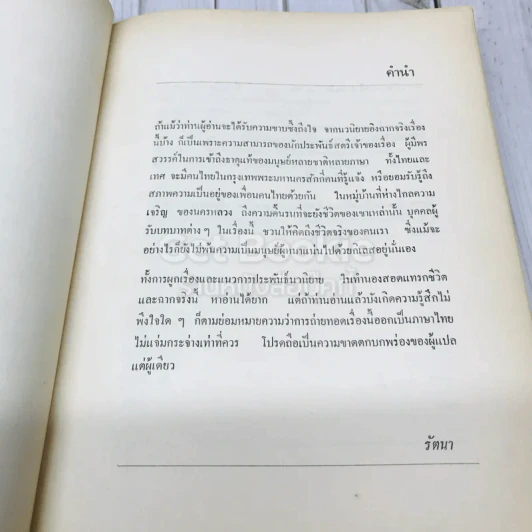 คำนำ
ถ้าแม้ว่าท่านผู้อ่านจะได้รับความซาบซึ้งถึงใจ จากนวนิยายอิงฉากจริงเรื่อง
นี้บ้าง ก็เป็นเพราะความสามารถของนักประพันธ์สตรีเจ้าของเรื่อง ผู้มีพร
สวรรค์ในการเข้าถึงธาตุแท้ของมนุษย์หลายชาติหลายภาษา ทั้งไทยและ
เทศ จะมีคนไทยในกรุงเทพพระมหานครสักกี่คนที่รู้แจ้ง หรือยอมรับรู้ถึง
สภาพความเป็นอยู่ของเพื่อนคนไทยด้วยกัน ในหมู่บ้านที่ห่างไกลความ
เจริญ ของนครหลวง ถึงความดิ้นรนที่จะยังชีวิตของเขาเหล่านั้น บุคคลผู้
รับบทบาทต่าง ๆ ในเรื่องนี้ ชวนให้คิดถึงชีวิตจริงของคนเรา ซึ่งแม้จะ
อย่างไรก็ยังไม่พ้นความเป็นมนุษย์ผู้หนาแน่นไปด้วยกิเลสอยู่นั่นเอง
ทั้งการผูกเรื่องและแนวการประพันธ์นวนิยาย ในทำนองสอดแทรกชีวิต
และฉากจริงนี้ หาอ่านได้ยาก แต่ถ้าท่านอ่านแล้วบังเกิดความรู้สึกไม่
พึงใจใด ๆ ก็ตามย่อมหมายความว่าการถ่ายทอดเรื่องนี้ออกเป็นภาษาไทย
ไม่แจ่มกระจ่างเท่าที่ควร โปรดถือเป็นความขาดตกบกพร่องของผู้แปล
แต่ผู้เดียว
รัตนา